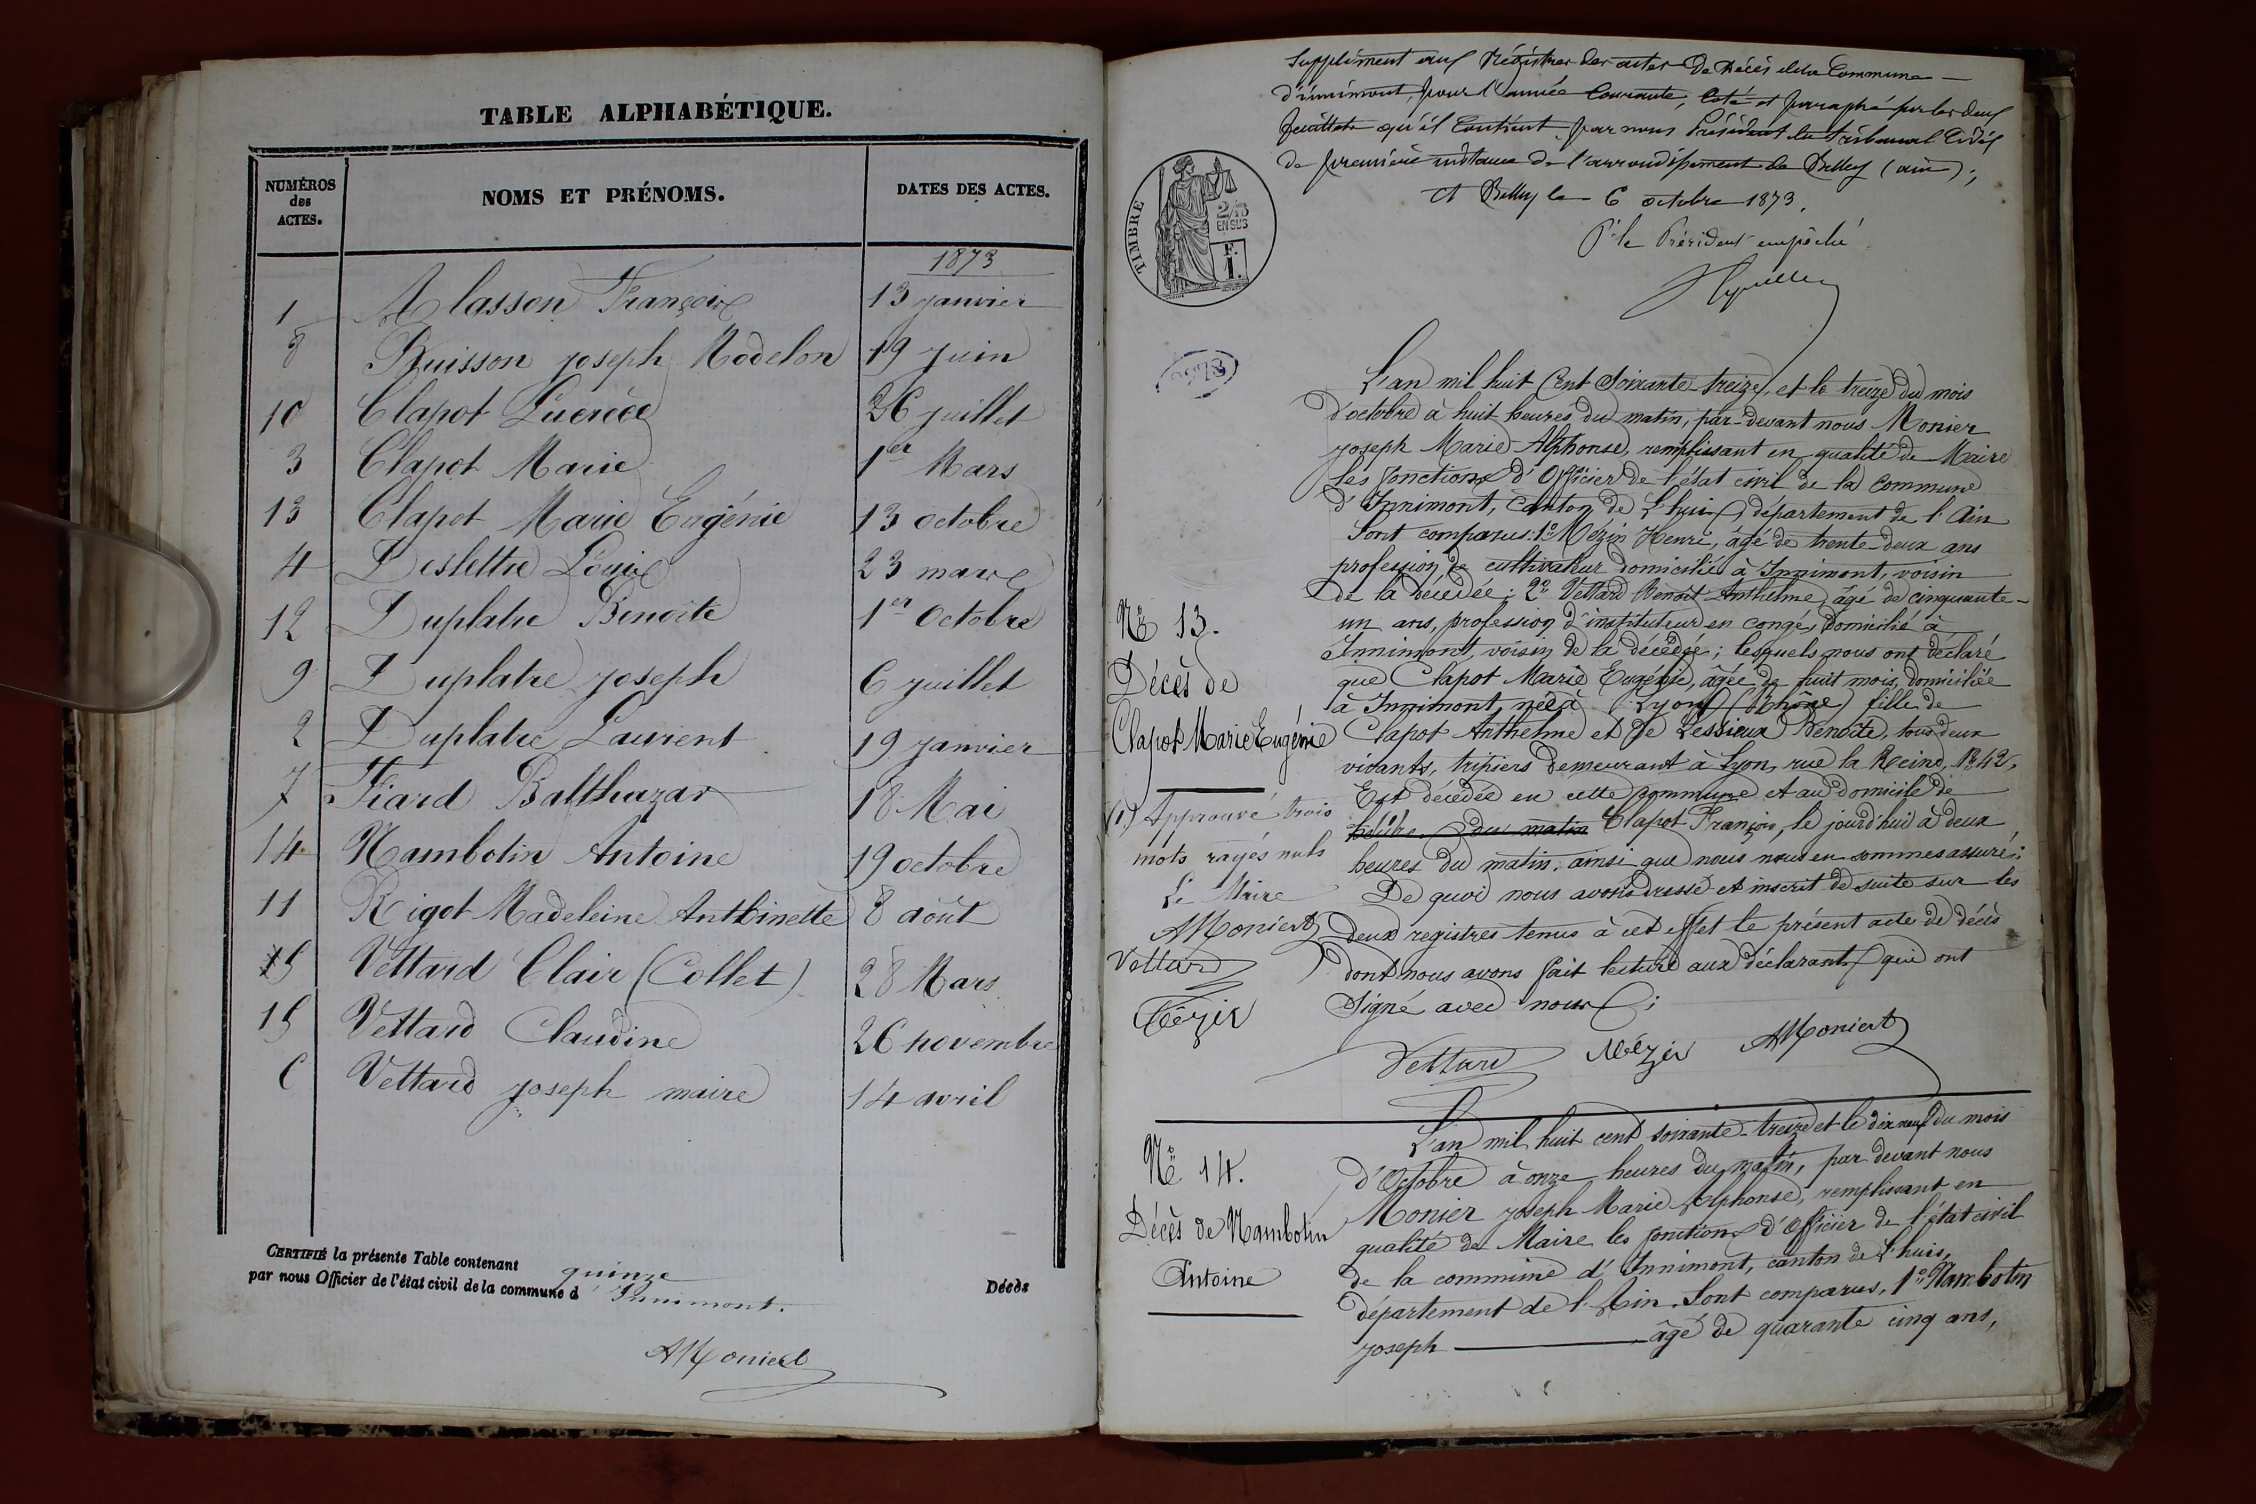 TABLE ALPHABÉTIQUE.
NUMÉROS des ACTES. NOMS ET PRÉNOMS. DATES DES ACTES.
1873
1 Alasson Françoise 13 janvier
8 Buisson joseph Rodelon 19 juin
10 Clapot Lucrèce 26 juillet
3 Clapot Marie 1er Mars
13 Clapot Marie Eugénie 13 octobre
4 Deslettre Louise 23 mars
12 Duplatre Benoite 1er Octobre
9 Duplatre joseph 6 juillet
2 Duplatre Laurent 19 janvier
7 Fiard Balthazar 18 Mai
14 Nambotin Antoine 19 octobre
11 Rigot Madeleine Anthoinette 8 août
5 Vettard Clair (Collet) 28 Mars
15 Vettard Claudine 26 novembre
6 Vettard joseph maire 14 avril
CERTIFIÉ la présente Table contenant quinze Décès
par nous Officier de l'état civil de la commune d'Innimont.
AMonier
Supplément aux Régistres des actes de Décès de la Commune
d'innimont, pour l'année Courante, Coté et paraphé sur les deux
feuillets qu'il Contient par nous Président du Tribunal Civil
de première instance de l'arrondissement de Belley (ain);
A Belley le 6 octobre 1873.
Pr le Président empêché
TIMBRE
2/10
EN SUS
F.
1.
L'an mil huit Cent Soixante-treize, et le treize du mois
d'octobre à huit heures du matin, par-devant nous Monier
joseph Marie Alphonse, remplissant en qualité de Maire
les fonctions d'Officier de l'état civil de la Commune
d'Innimont, Canton de L'huis, département de l'Ain
Sont comparus: 1º Mézin Henri, âgé de trente-deux ans
profession de cultivateur domicilié à Innimont, voisin
de la décédée: 2º Vettard Benoit Anthelme âgé de cinquante-
un ans, profession d'instituteur en congé, domicilié à
Innimont, voisin de la décédée; lesquels nous ont déclaré
que Clapot Marie Eugénie, âgée de huit mois, domiciliée
à Innimont née à Lyon (Rhône) fille de
Clapot Anthelme et de Lessieux Benoîte, tous deux
vivants, tripiers demeurant à Lyon, rue la Reine, Nº 42,
Est décédée en cette commune et au domicile de
heure du matin Clapot François, le jourd'hui à deux
heures du matin, ainsi que nous nous en sommes assuré;
De quoi nous avons dressé et inscrit de suite sur les
deux registres tenus à cet effet le présent acte de décès
dont nous avons fait lecture aux déclarants qui ont
Signé avec nous;
Vettard Mézin AMonier
Nº 13.
Décès de
Clapot Marie Eugénie
(1) Approuvé trois
mots rayés nuls
Le Maire
AMonier
Vettard
Mézin
Nº 14.
Décès de Nambotin
Antoine
L'an mil huit cent soixante-treize et le dix neuf du mois
d'Octobre à onze heures du matin, par devant nous
Monier joseph Marie Alphonse, remplissant en
qualité de Maire les fonctions d'Officier de l'état civil
de la commune d'Innimont, canton de L'huis,
département de l'Ain. Sont comparus, 1º Nambotin
joseph âgé de quarante cinq ans,